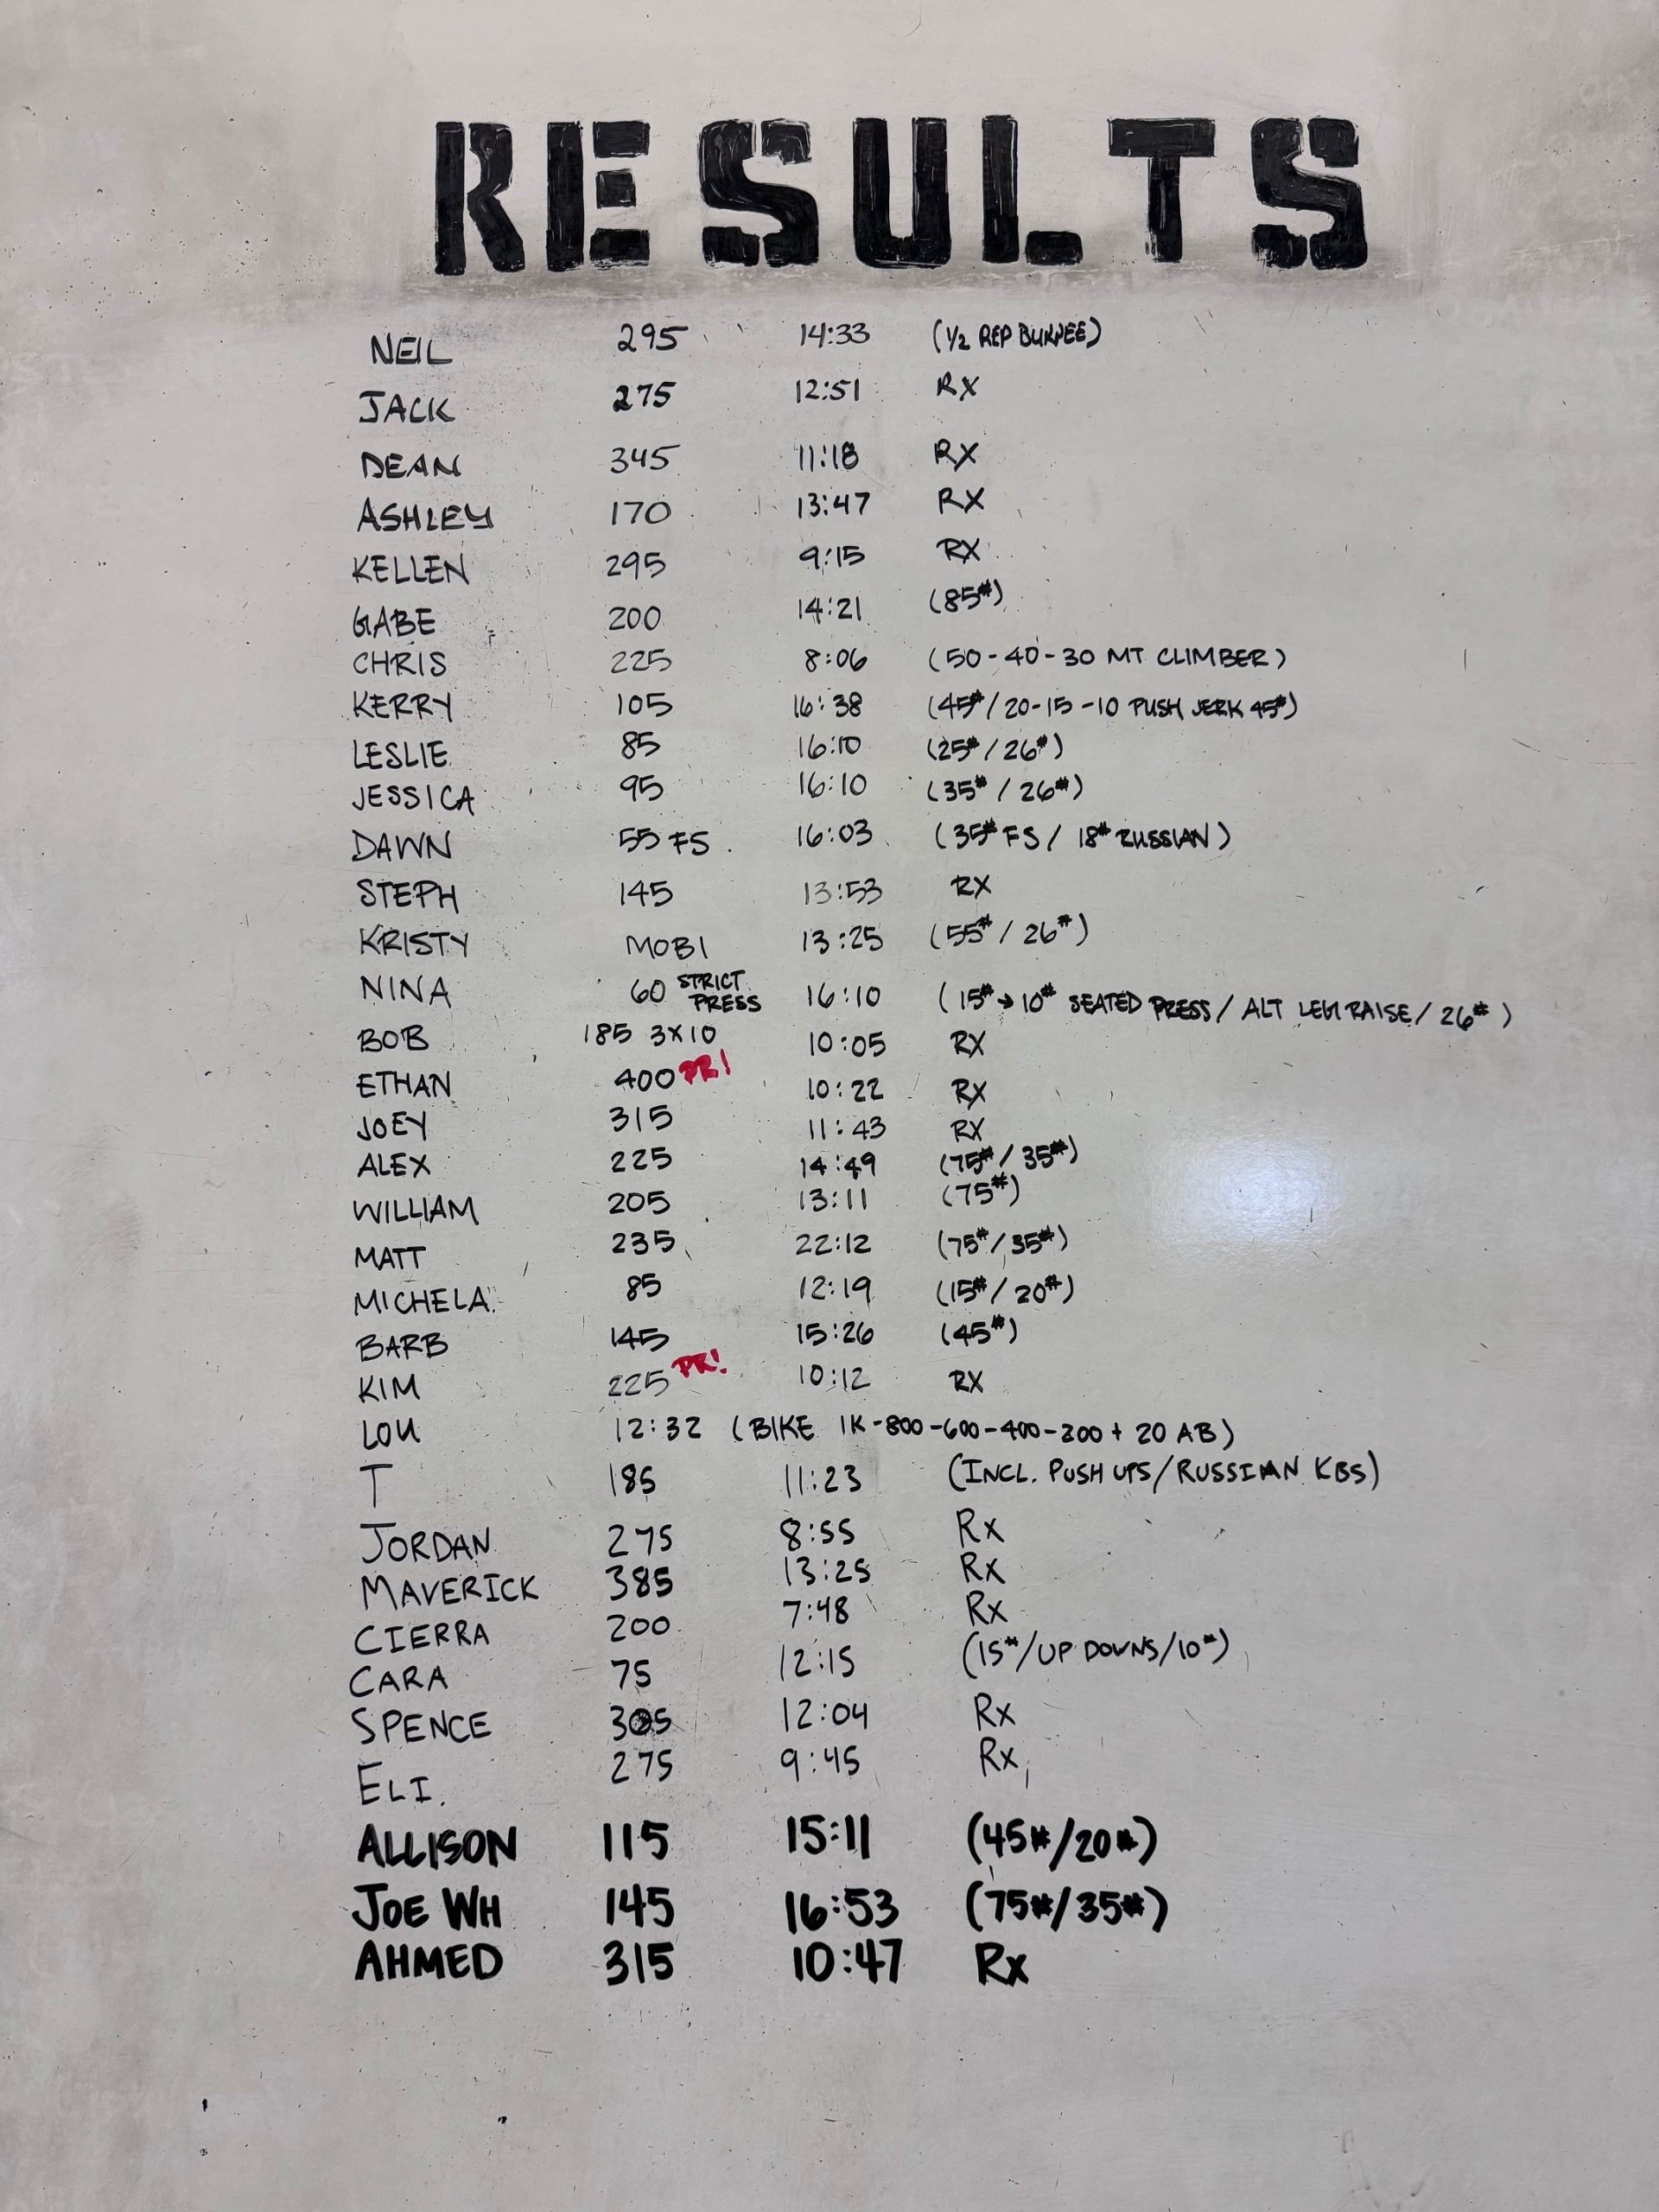 RESULTS
NEIL 295 14:33 (1/2 REP BURPEE)
JACK 275 12:51 RX
DEAN 345 11:18 RX
ASHLEY 170 13:47 RX
KELLEN 295 9:15 RX
GABE 200 14:21 (85#)
CHRIS 225 8:06 (50-40-30 MT CLIMBER)
KERRY 105 16:38 (45#/20-15-10 PUSH JERK 45#)
LESLIE 85 16:10 (25#/26#)
JESSICA 95 16:10 (35#/26#)
DAWN 55 FS 16:03 (35# FS/ 18# RUSSIAN)
STEPH 145 13:53 RX
KRISTY MOBI 13:25 (55#/26#)
NINA 60 STRICT PRESS 16:10 (15#→10# SEATED PRESS/ ALT LEG RAISE/26#)
BOB 185 3X10 10:05 RX
ETHAN 400 PR! 10:22 RX
JOEY 315 11:43 RX
ALEX 225 14:49 (75#/35#)
WILLIAM 205 13:11 (75#)
MATT 235 22:12 (75#/35#)
MICHELA 85 12:19 (15#/20#)
BARB 145 15:26 (45#)
KIM 225 PR! 10:12 RX
LOU 12:32 (BIKE 1K-800-600-400-200 + 20 AB)
T 185 11:23 (INCL. PUSH UPS/RUSSIAN KBS)
JORDAN 275 8:55 Rx
MAVERICK 385 13:25 Rx
CIERRA 200 7:48 Rx
CARA 75 12:15 (15#/UP DOWNS/10#)
SPENCE 305 12:04 Rx
ELI. 275 9:45 Rx
ALLISON 115 15:11 (45#/20#)
JOE WH 145 16:53 (75#/35#)
AHMED 315 10:47 Rx